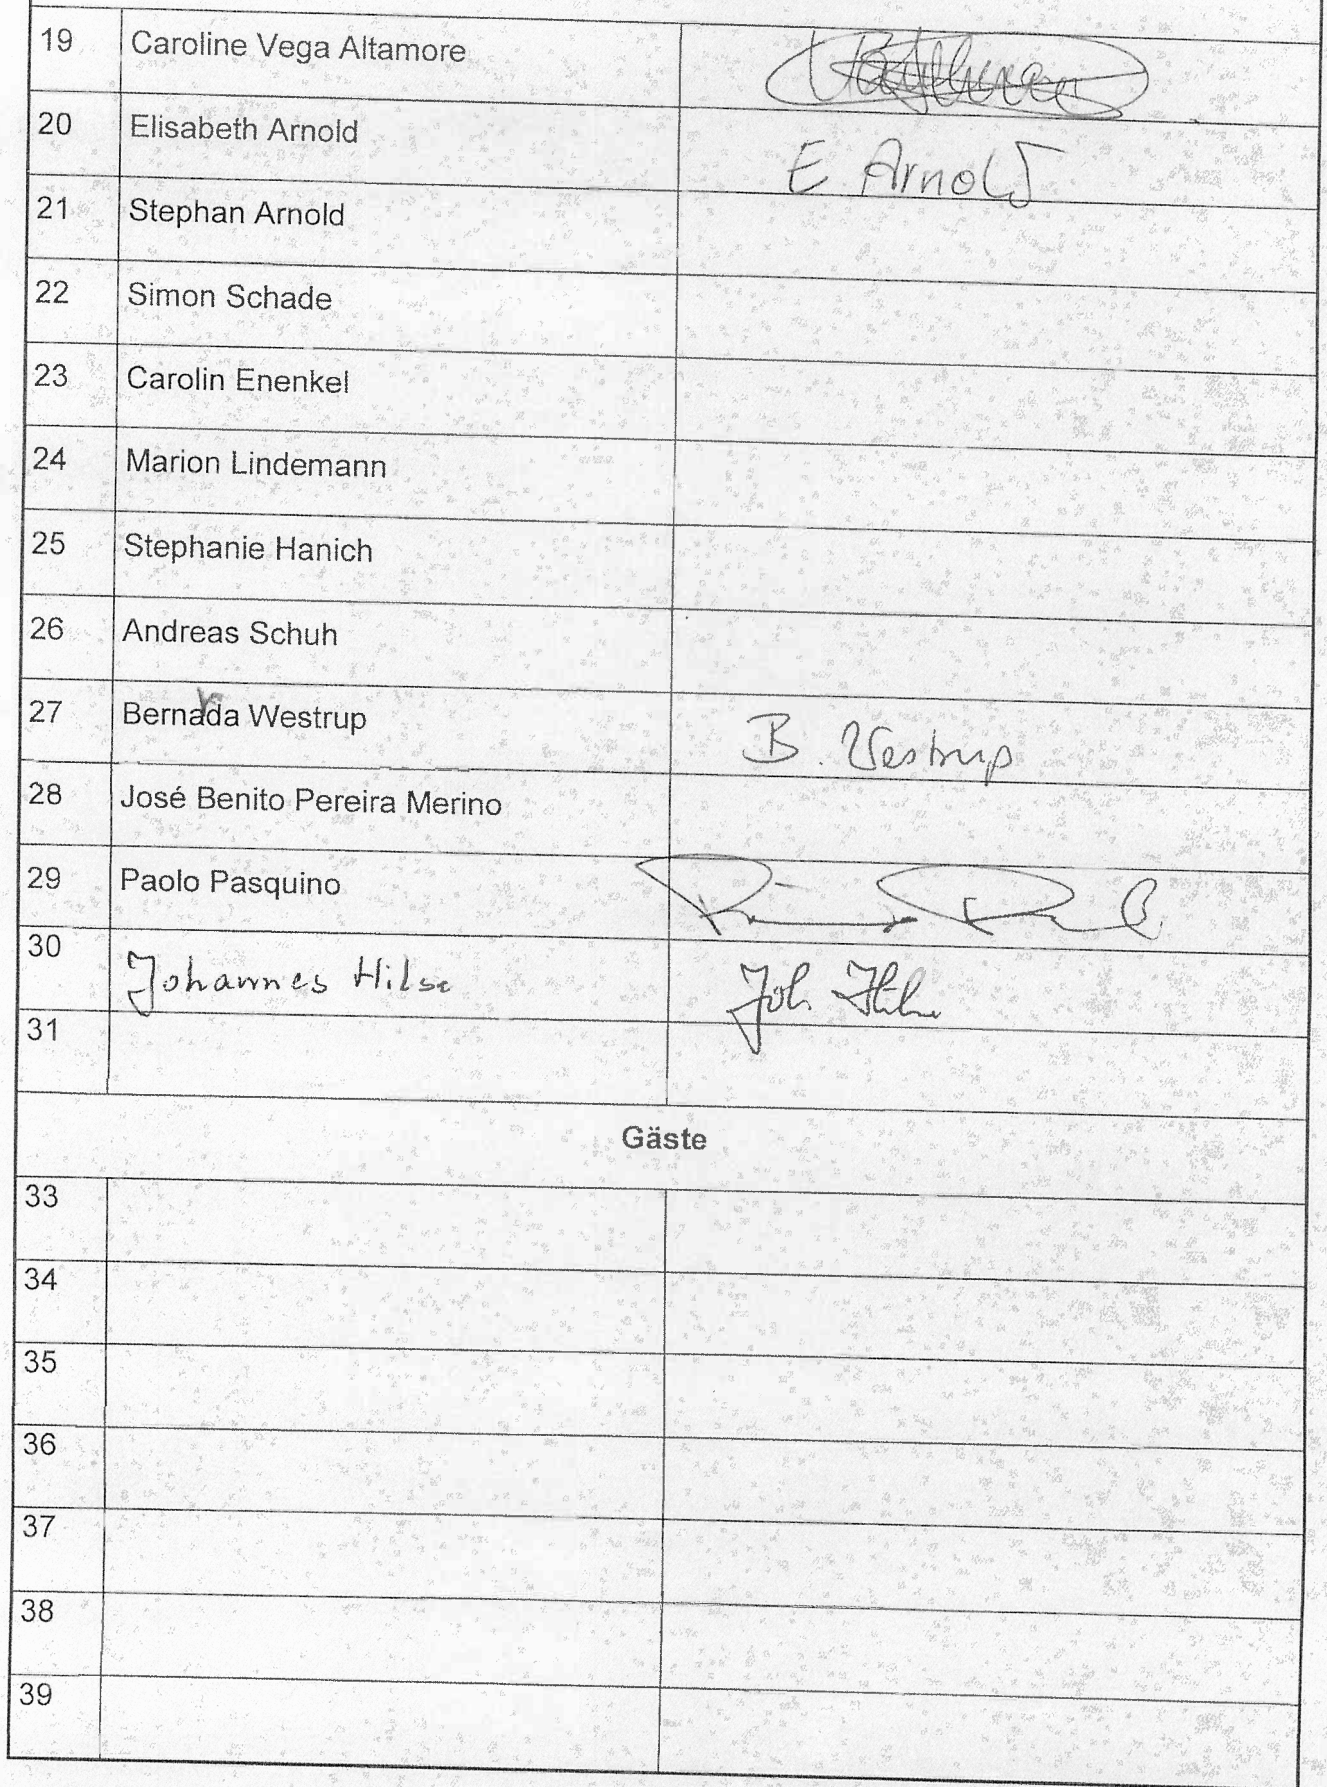 19 Caroline Vega Altamore
20 Elisabeth Arnold E Arnold
21 Stephan Arnold
22 Simon Schade
23 Carolin Enenkel
24 Marion Lindemann
25 Stephanie Hanich
26 Andreas Schuh
r
27 Bernada Westrup B. Westrup
28 José Benito Pereira Merino
29 Paolo Pasquino
30 Johannes Hilse Joh. Hilse
31
Gäste
33
34
35
36
37
38
39